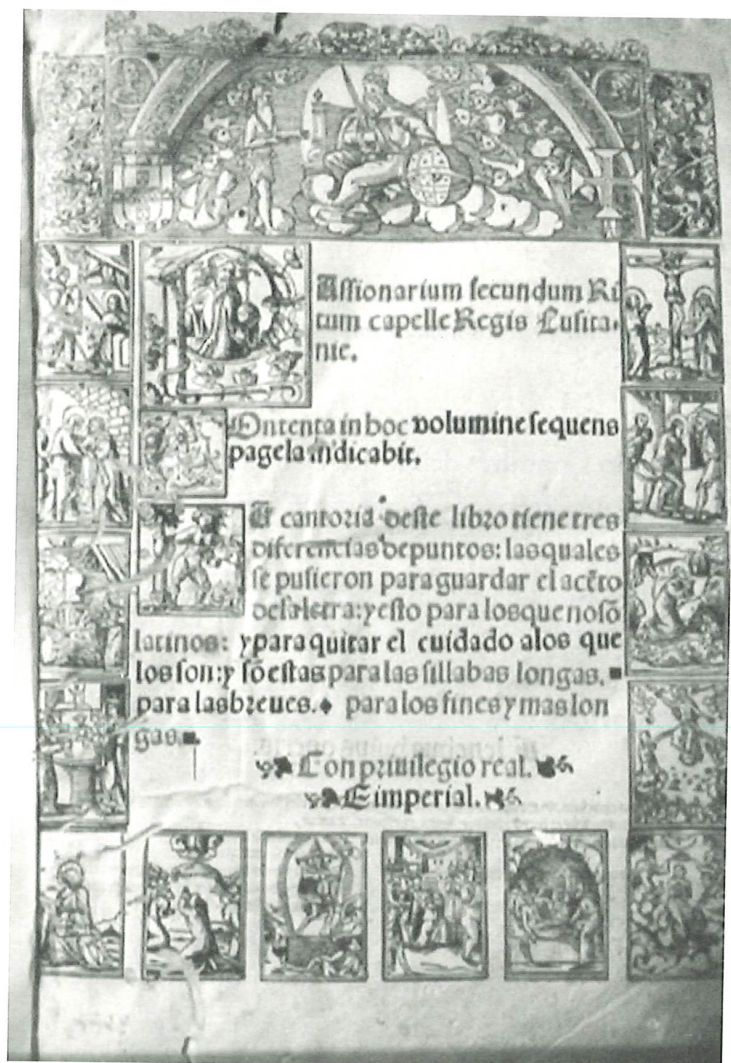 PAssionarium secundum Ri
tum capelle Regis Lusita-
nie.
COntenta in hoc volumine sequens
pagela indicabit.
LA cantoria deste libro tiene tres
diferencias de puntos: las quales
se pusieron para guardar el acẽto
dela letra: y esto para los que no sõ
latinos: y para quitar el cuidado alos que
los son: y sõ estas para las sillabas longas. ■
para las breues. ◆ para los fines y mas lon
gas. ■
Con priuilegio real.
E imperial.